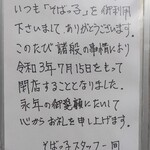 いつも「そばっ子」を御利用
下さいまして、ありがとうございます。
このたび諸般の事情により
令和3年7月15日をもって
閉店することとなりました。
永年の御愛顧にたいして
心からお礼を申し上げます。
そばっ子スタッフ一同